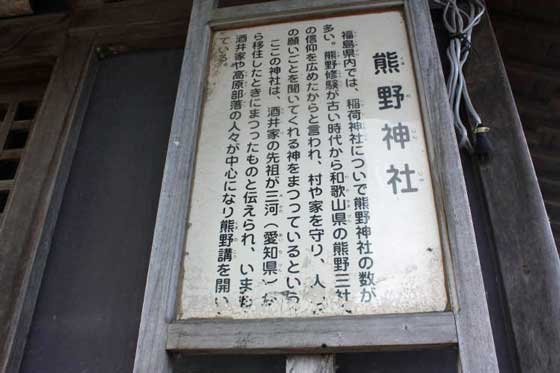 熊野神社
福島県内では、稲荷神社についで熊野神社の数が
多い。熊野修験が古い時代から和歌山県の熊野三社
の信仰を広めたからと言われ、村や家を守り、人
の願いごとを聞いてくれる神をまつっているという
ここの神社は、酒井家の先祖が三河(愛知県)か
ら移住したときにまつったものと伝えられ、いまも
酒井家や高原部落の人々が中心になり熊野講を開い
ている。